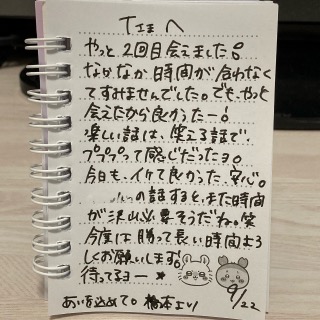 やっと2回目会えました!
なかなか時間が合わなく
てすみませんでした。でも、やっと
会えたから良かったー!
楽しい話は、笑える話で、
プププって感じだったョ。
今日も、イケて良かった、安心。
の話すると、また時間
が沢山必要そうだね。笑
今度は勝って長い時間よろ
しくお願いします。
待ってるョー ★
あいを込めて。橋本えり
9/22